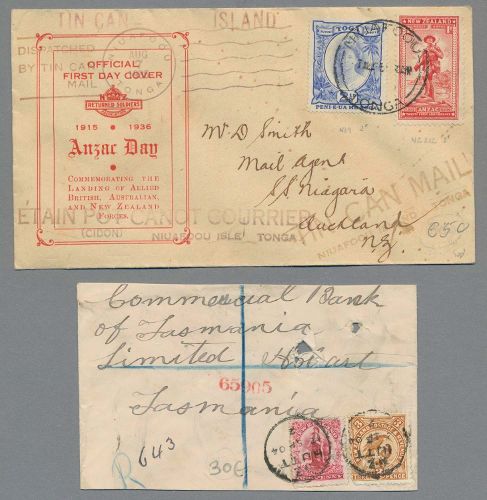 TIN CAN ISLAND
DISPATCHED
BY TIN CAN
MAIL
NIUAFOOU
AUG
TONGA
OFFICIAL
FIRST DAY COVER
RETURNED SOLDIERS
1915 • 1936
Anzac Day
COMMEMORATING THE
LANDING OF ALLIED
BRITISH, AUSTRALIAN,
AND NEW ZEALAND
FORCES.
TOGA
PENI E UA
NIUAFOOU
TONGA
NEW ZEALAND
ANZAC
Mr D Smith
Mail Agent
S.S. Niagara
Auckland
N.Z.
TIN CAN MAIL
NIUAFOOU TONGA
ETAIN POT CANOT COURRIER
(CIDON)
NIUAFOOU ISLE TONGA
650
Commercial Bank
of Tasmania
Limited Hobart
65905
Tasmania
R 643
30E
HUTT
N.Z
04
HUTT
N.Z